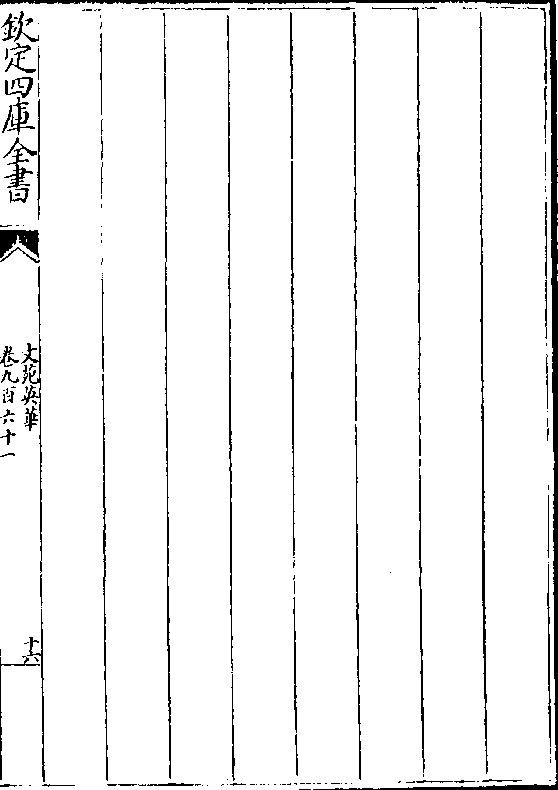 欽定四庫全書
文苑英華
卷九百六十一
十六